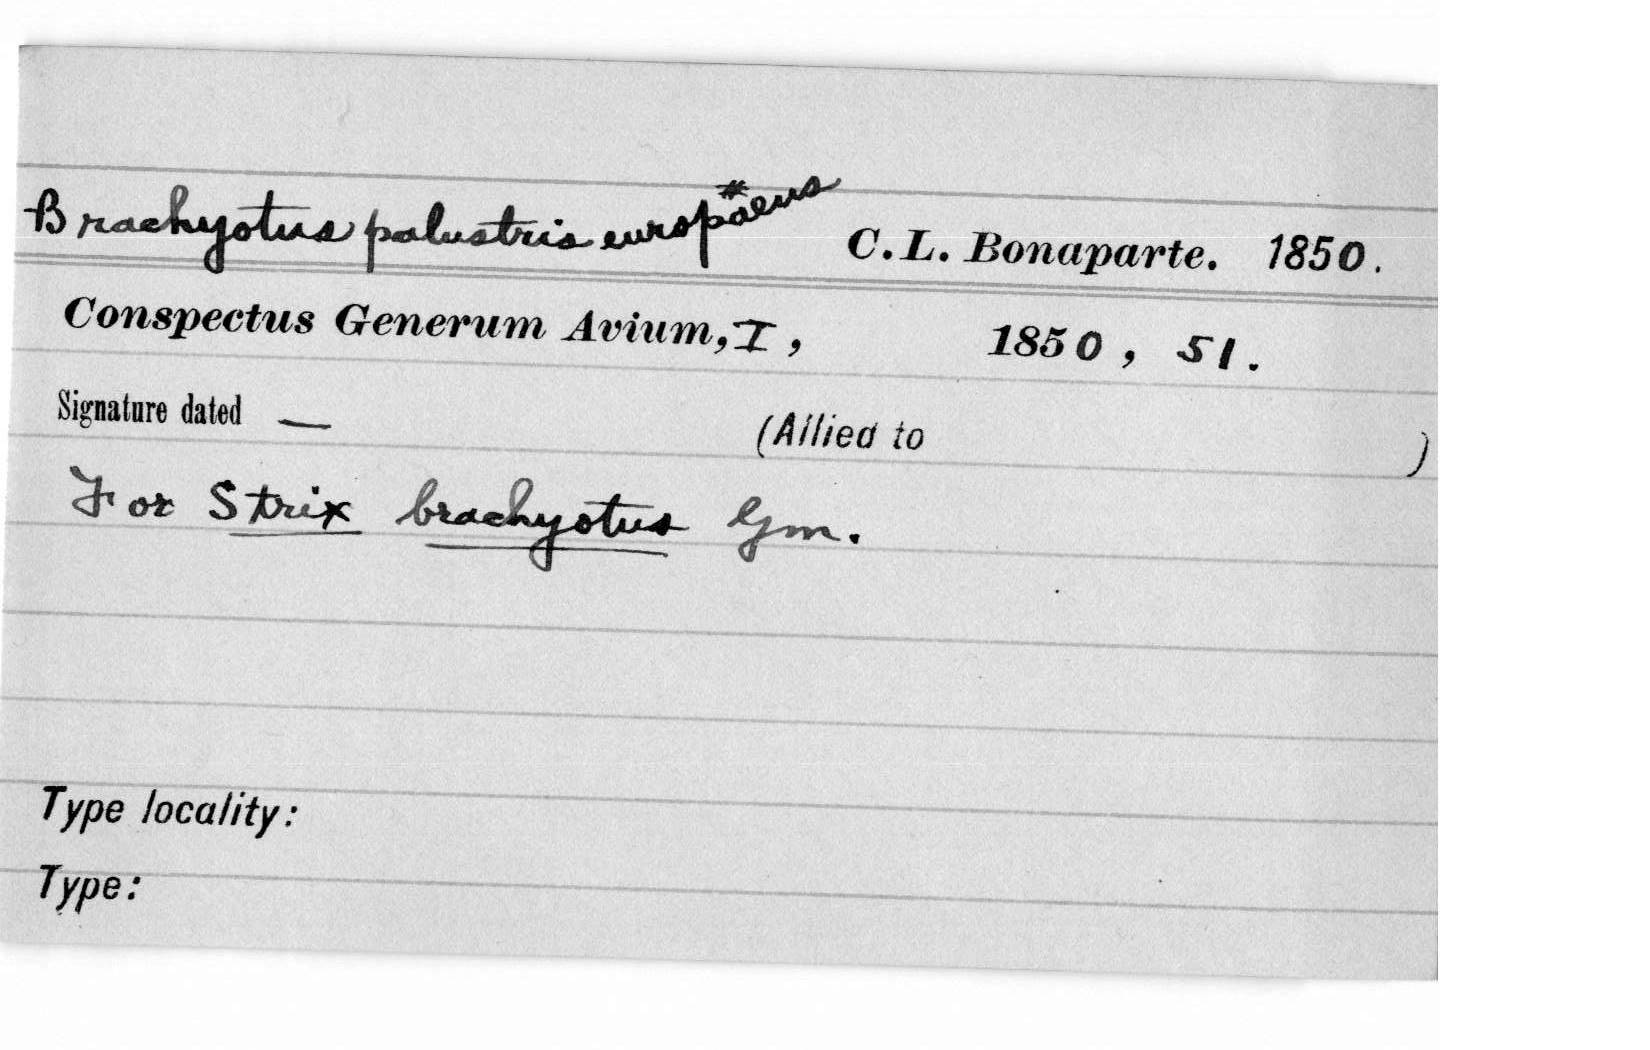 Brachyotus palustris europaeus # C. L. Bonaparte. 1850.
Conspectus Generum Avium, I, 1850, 51.
Signature dated — (Allied to )
For Strix brachyotus Gm.
Type locality:
Type: